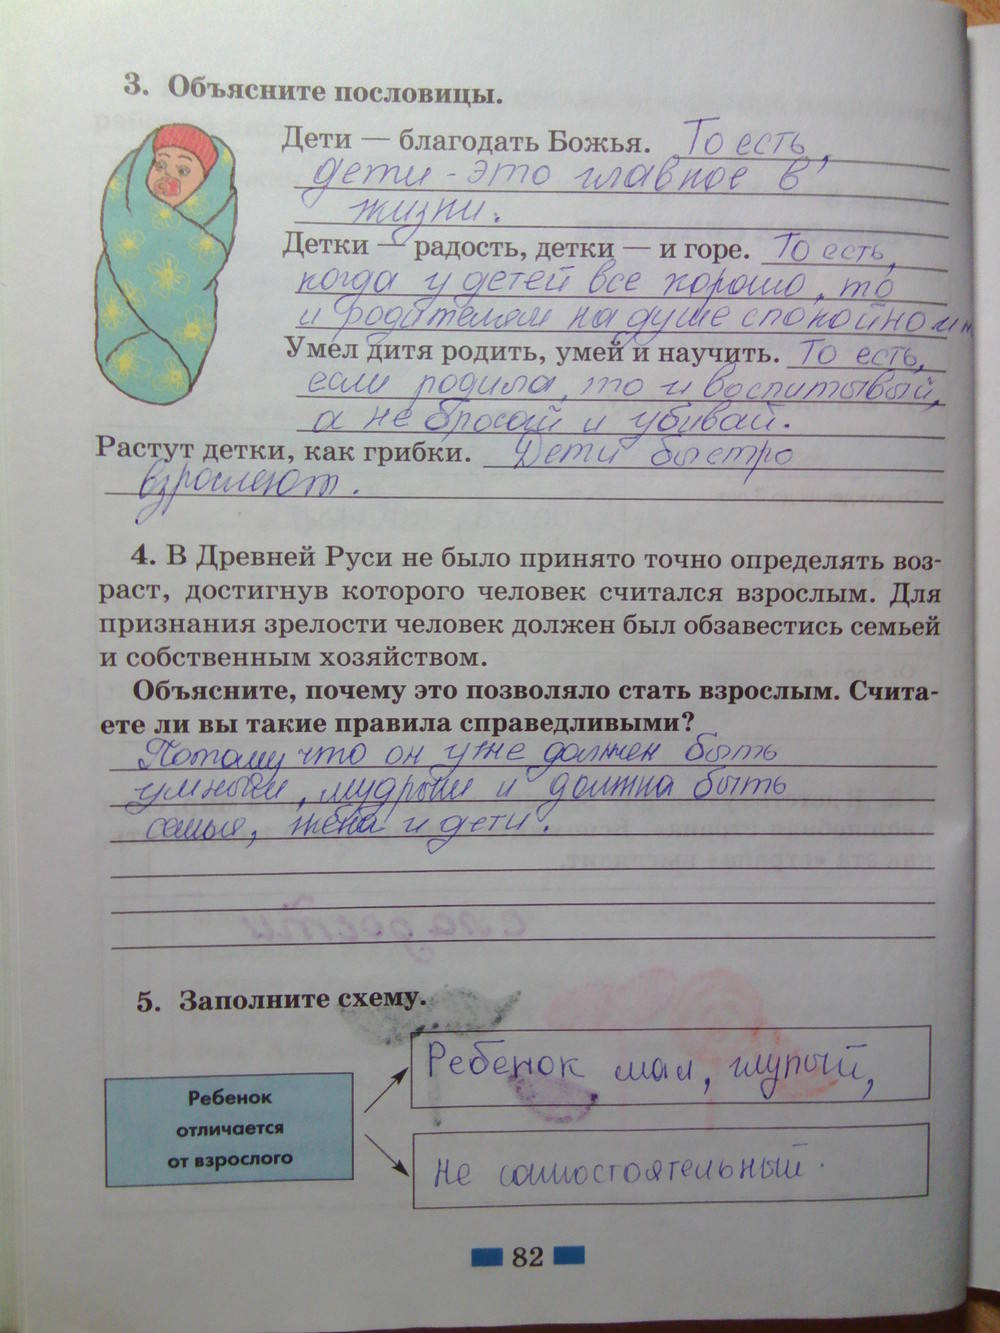 3. Объясните пословицы.
Дети — благодать Божья. То есть,
дети - это главное в
жизни.
Детки — радость, детки — и горе. То есть,
когда у детей все хорошо, то
и родителям на душе спокойно
Умел дитя родить, умей и научить. То есть,
если родила, то и воспитывай,
а не бросай и убивай.
Растут детки, как грибки. Дети быстро
взрослеют.
4. В Древней Руси не было принято точно определять воз-
раст, достигнув которого человек считался взрослым. Для
признания зрелости человек должен был обзавестись семьей
и собственным хозяйством.
Объясните, почему это позволяло стать взрослым. Счита-
ете ли вы такие правила справедливыми?
Потому что он уже должен быть
умным, мудрым и должна быть
семья, жена и дети.
5. Заполните схему.
Ребенок
отличается
от взрослого
Ребенок мал, глупый,
не самостоятельный.
82